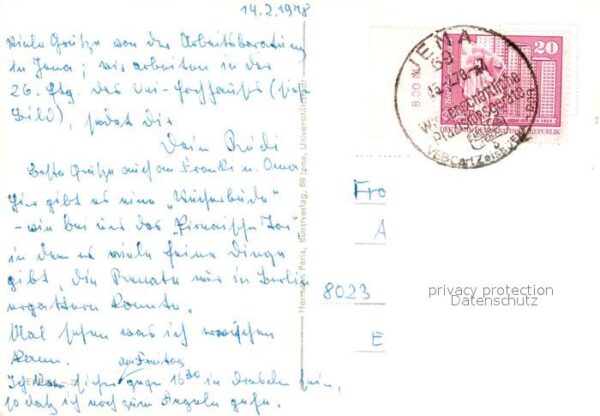 14.2.1978
Viele Grüße von der Arbeitsberatung
in Jena; wir arbeiten in der
26. Etg. des Uni-Hochhauses (siehe
Bild), sodaß die
Dein Rudi
beste Grüße auch an Franki u. Oma
Hier gibt es eine
- wie bei uns das "Pirnaische Tor",
in dem es viele feine Dinge
gibt, die Renate mir in Berlin
ergattern konnte.
Mal sehen was ich erwischen
kann.
am Freitag
Ich sicher gegen 16 30 in Dresden sein,
sodaß ich noch zum Kegeln gehe.
Hermann Paris, Kunstverlag, 69 Jena, Universitäts
Fro
A
8023
E
800 M
20
REPUBLIK
JENA
69
-2.78-
Wissenschaftliche
Präzisionsgeräte
VEB Carl Zeiss JENA
privacy protection
Datenschutz